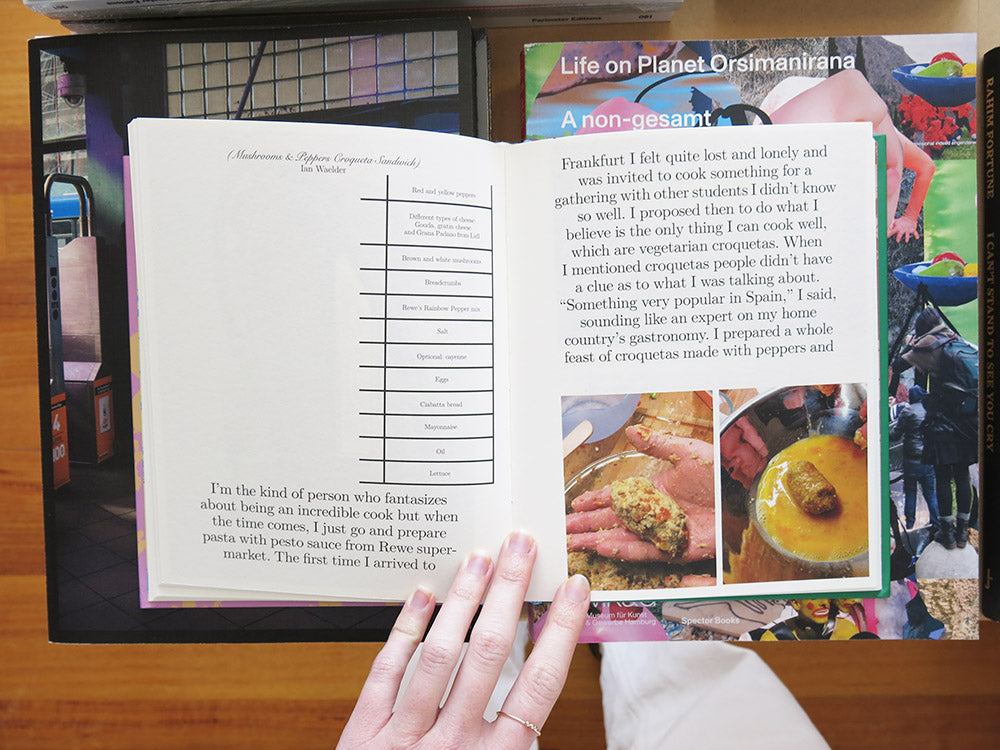 Perimeter Editions
081
Life on Planet Orsimanirana
A non-gesamt
(Mushrooms & Peppers Croqueta Sandwich)
Ian Waelder
Red and yellow peppers
Different types of cheese
Gouda, gratin cheese
and Grana Padano from Lidl
Brown and white mushrooms
Breadcrumbs
Rewe's Rainbow Pepper mix
Salt
Optional: cayenne
Eggs
Ciabatta bread
Mayonnaise
Oil
Lettuce
I'm the kind of person who fantasizes
about being an incredible cook but when
the time comes, I just go and prepare
pasta with pesto sauce from Rewe super-
market. The first time I arrived to
Frankfurt I felt quite lost and lonely and
was invited to cook something for a
gathering with other students I didn't know
so well. I proposed then to do what I
believe is the only thing I can cook well,
which are vegetarian croquetas. When
I mentioned croquetas people didn't have
a clue as to what I was talking about.
“Something very popular in Spain,” I said,
sounding like an expert on my home
country's gastronomy. I prepared a whole
feast of croquetas made with peppers and
Museum für Kunst
& Gewerbe Hamburg
Spector Books
RAHIM FORTUNE
I CAN'T STAND TO SEE YOU CRY